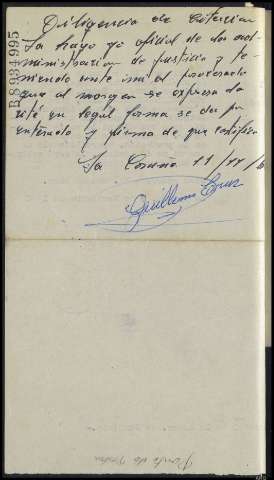 B8934995
Diligencia de citación
La hago yo oficial de la ad-
ministración de justicia y te-
niendo ante mi al procesado
que al margen se expresa la
cité en legal forma se da por
enterado y firma de que certifico
La Coruña 11/
Guillermo Cruz